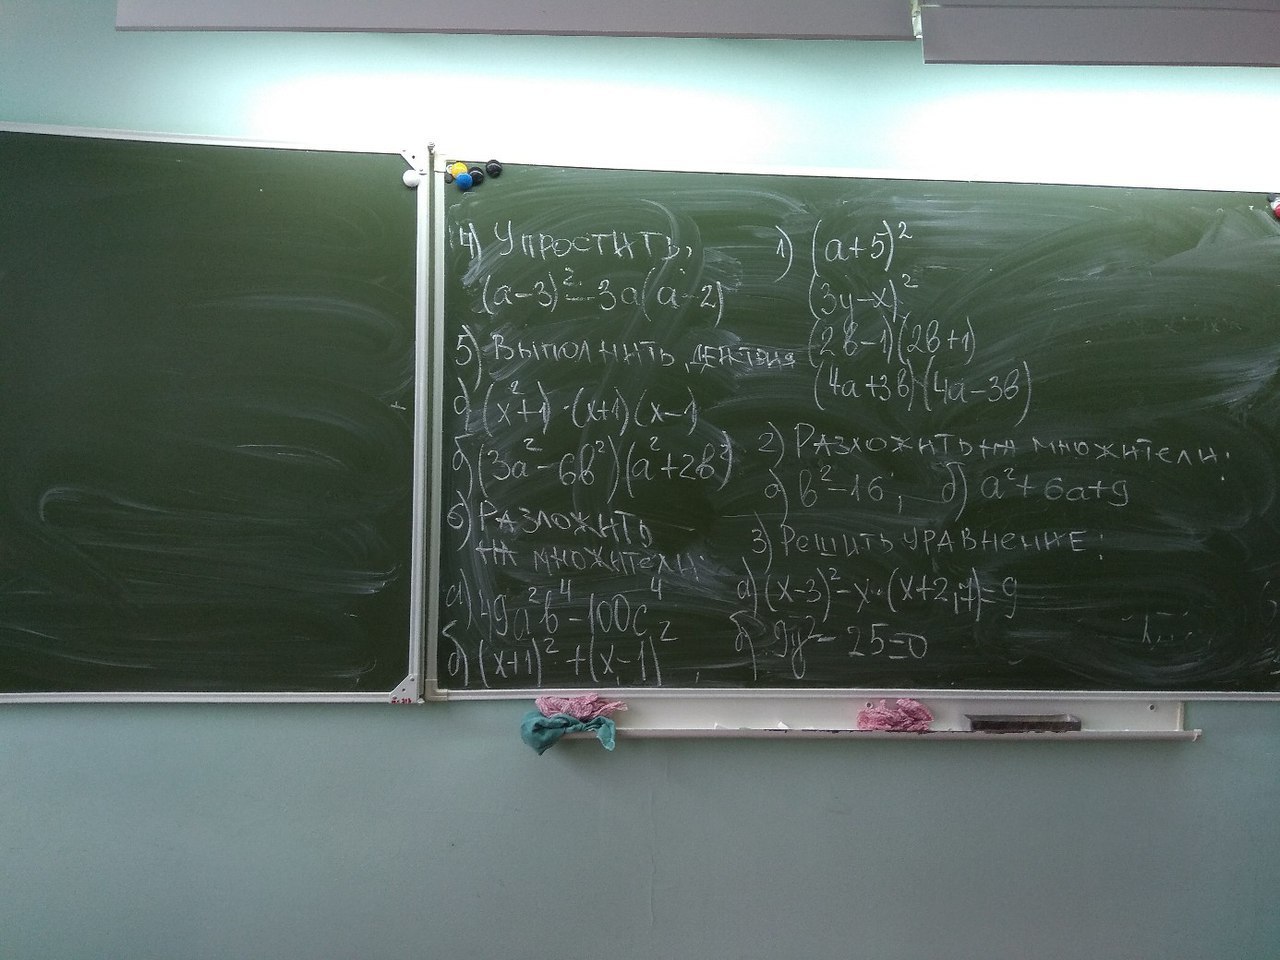 4) Упростить,
(a-3)² - 3a(a-2)
5) Выполнить действия
а) (x²+1)·(x+1)(x-1)
б) (3a²-6b²)(a²+2b²)
6) Разложить
на множители:
а) 49a²b⁴-100c⁴
б) (x+1)²+(x-1)²
1) (a+5)²
(3y-x)²
(2b-1)(2b+1)
(4a+3b)(4a-3b)
2) Разложить на множители:
а) b²-16; б) a²+6a+9
3) Решить уравнение:
а) (x-3)²-x·(x+2,7)=9
б) 9y²-25=0